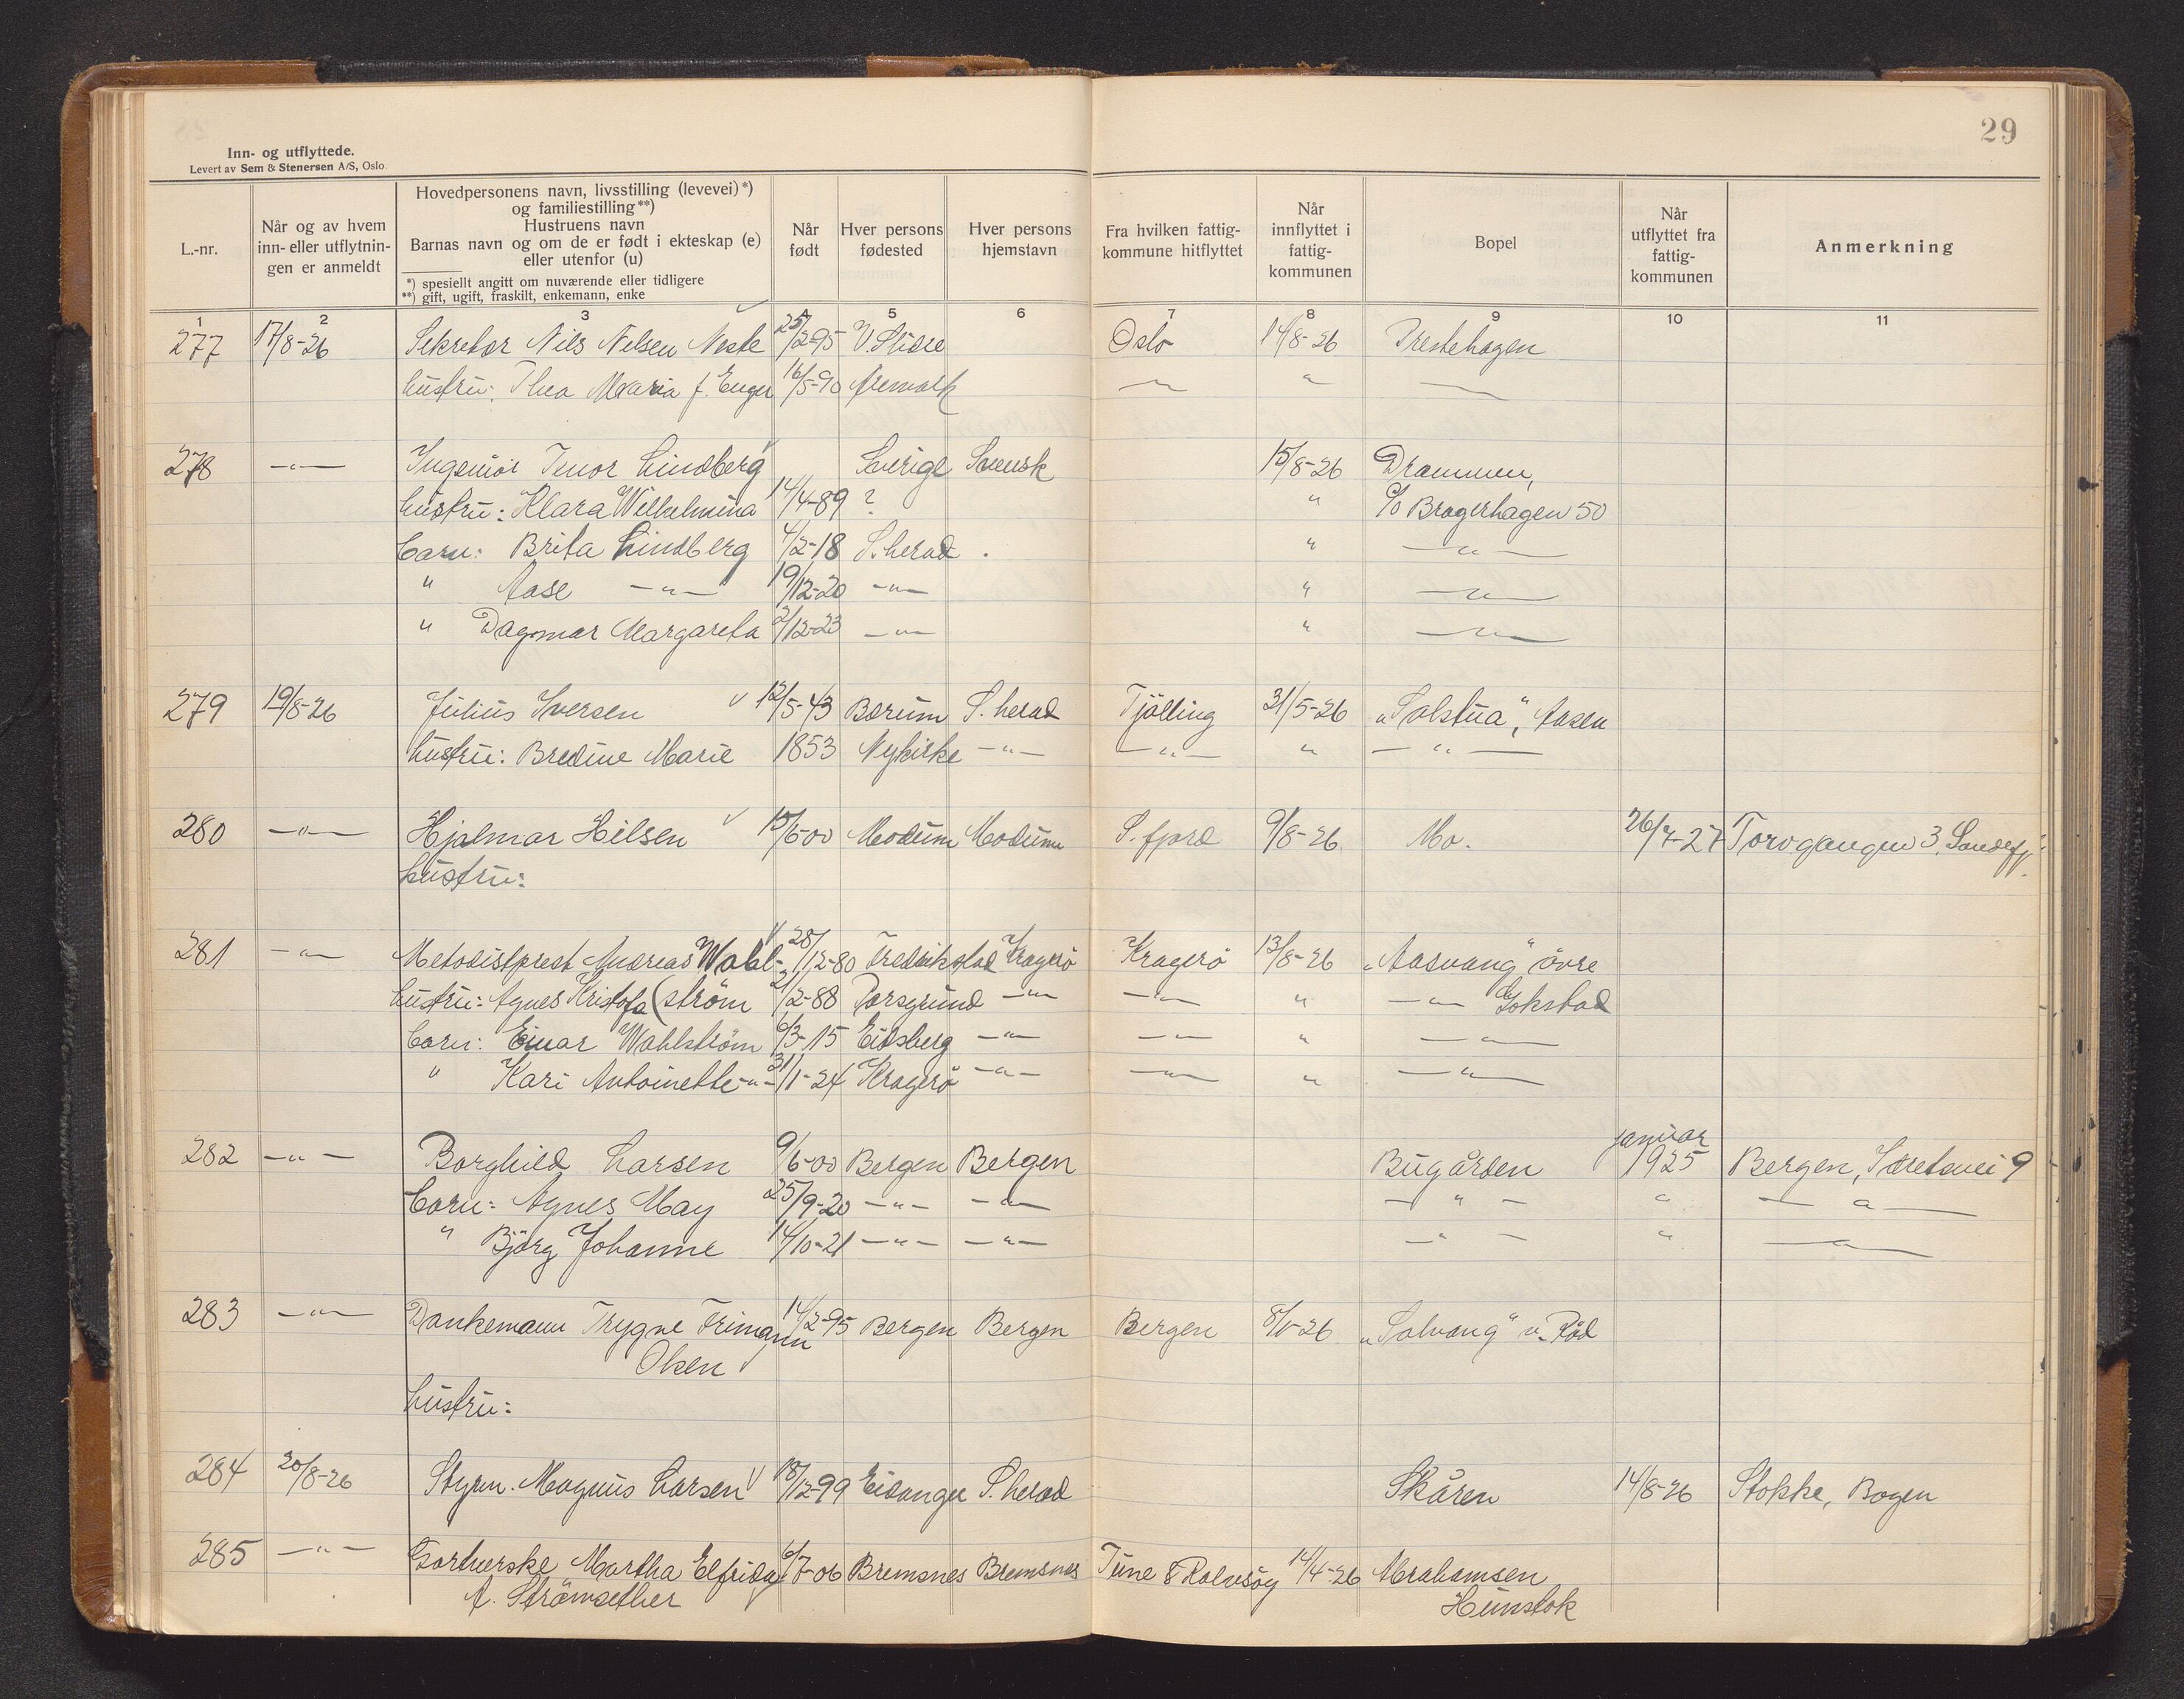 29
Inn- og utflyttede.
Levert av Sem & Stenersen A/S, Oslo.
L.-nr.
Når og av hvem inn- eller utflytnin-gen er anmeldt
Hovedpersonens navn, livsstilling (levevei)*) og familiestilling**)
Hustruens navn
Barnas navn og om de er født i ekteskap (e) eller utenfor (u)
*) spesiellt angitt om nuværende eller tidligere
**) gift, ugift, fraskilt, enkemann, enke
Når født
Hver persons fødested
Hver persons hjemstavn
Fra hvilken fattig-kommune hitflyttet
Når innflyttet i fattig-kommunen
Bopel
Når utflyttet fra fattig-kommunen
Anmerkning
1 2 3 4 5 6 7 8 9 10 11
277 17/8-26 Sekretær Nils Nelsen Neste 25/2-95 V. Slidre Oslo 14/8-26 Prestehagen
hustru: Thea Maria f. Enger 16/5-90 Aremark —"— " —"—
278 —"— Ingeniör Tenor Lindberg Sverige Svensk 15/8-26 Drammen,
hustru: Klara Wilhelmina 14/4-89 ? " c/o Bragerhagen 50
barn: Brita Lindberg 4/2-18 S. herad . " —"—
" Aase —"— 19/12-20 —"— " —"—
" Dagmar Margareta 2/12-23 —"— " —"—
279 19/8-26 Julius Iversen 12/5-43 Bærum S. herad Tjölling 31/5-26 "Solstua", Aasen
hustru: Bredine Marie 1853 Nykirke —"— —"— " —"—
280 —"— Hjalmar Hilsen 15/6-00 Modum Modum S. fjord 9/8-26 Mo. 26/7-27 Torvgangen 3, Sandefj.
hustru:
281 —"— Metodistprest Andreas Wahl- 28/12-80 Fredrikstad Kragerö Kragerö 13/8-26 "Aasvang" övre
hustru: Agnes Kristofa (ström 2/2-88 Porsgrund —"— —"— " —"— Gokstad
barn: Einar Wahlström 6/3-15 Eidsberg —"— —"— " —"—
" Kari Antoinette —"— 31/1-24 Kragerö —"— —"— " —"—
282 —"— Borghild Larsen 9/6-00 Bergen Bergen Bugården januar 1925 Bergen, 9
barn: Agnes May 25/9-20 —"— —"— —"— " —"—
" Bjørg Johanne 14/10-21 —"— —"— —"— " —"—
283 —"— Dankemann Trygve Frimann 14/2-95 Bergen Bergen Bergen 8/1-26 "Solvang" v. Röd
Olsen
hustru:
284 20/8-26 Styrm. Magnus Larsen 18/12-99 Eidanger S. herad Skåren 14/8-26 Stokke, Bogen
285 —"— Gartnerske Martha Elfrida 6/7-06 Bremsnes Bremsnes Tune & Rolvsöy 14/4-26 Abrahamsen
A. Strömsether Hunstok